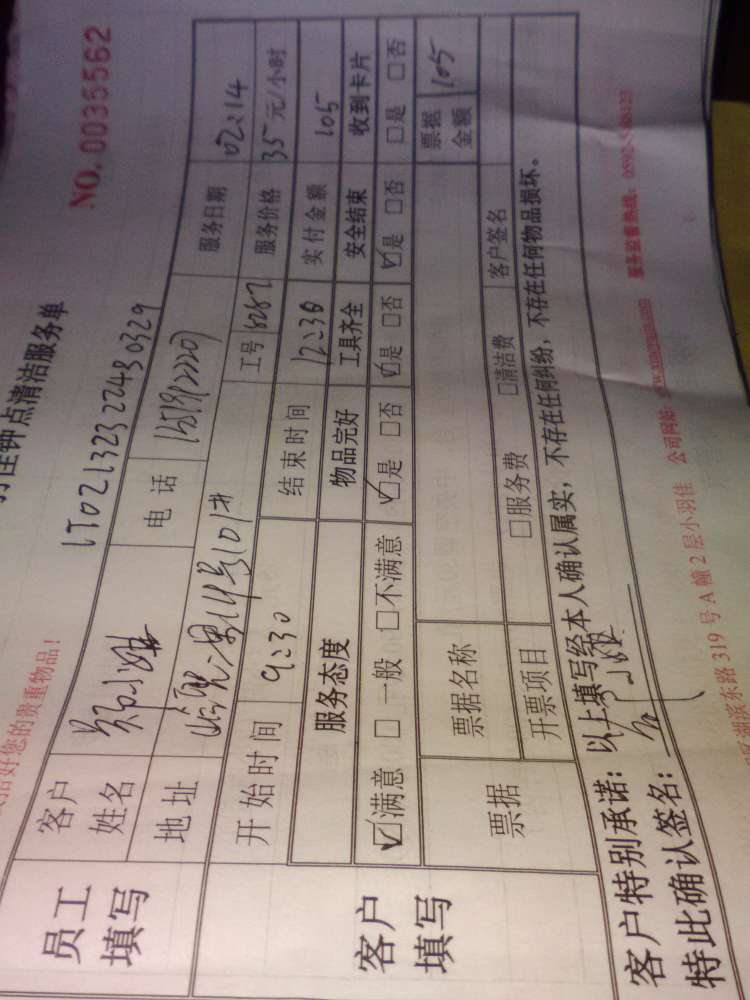 NO. 0035562
钟点清洁服务单
LT0213232248 0329
好您的贵重物品！
员工填写
客户姓名
电话
服务日期 02.14
地址
工号 8287
服务价格 35元/小时
客户填写
开始时间 9:30
结束时间 12:30
实付金额 105
服务态度 物品完好 工具齐全 安全结束 收到卡片
☑满意 □一般 □不满意 ☑是 □否 ☑是 □否 ☑是 □否 □是 □否
票据
票据名称
票据金额 105
开票项目 □服务费 □清洁费 客户签名
客户特别承诺：以上填写经本人确认属实，不存在任何纠纷，不存在任何物品损坏。
特此确认签名：
湖滨东路 319 号 A 幢 2 层小羽佳 公司网站： 服务监督热线：